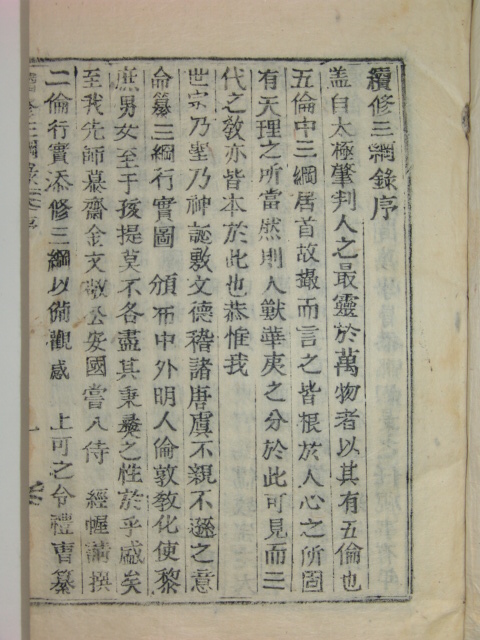 續修三綱錄序
盖自太極肇判人之最靈於萬物者以其有五倫也
五倫中三綱居首故撮而言之皆根於人心之所固
有天理之所當然則人獸華夷之分於此可見而三
代之敎亦皆本於此也恭惟我
世宗乃聖乃神誕敷文德稽諸唐虞不親不遜之意
命纂三綱行實圖 頒布中外明人倫敦敎化使黎
庶男女至于孩提莫不各盡其秉彛之性於乎盛矣
至我先師慕齋金文敬公安國嘗入侍 經幄請撰
二倫行實添修三綱以備觀感 上可之令禮曹纂
修三綱錄序
一